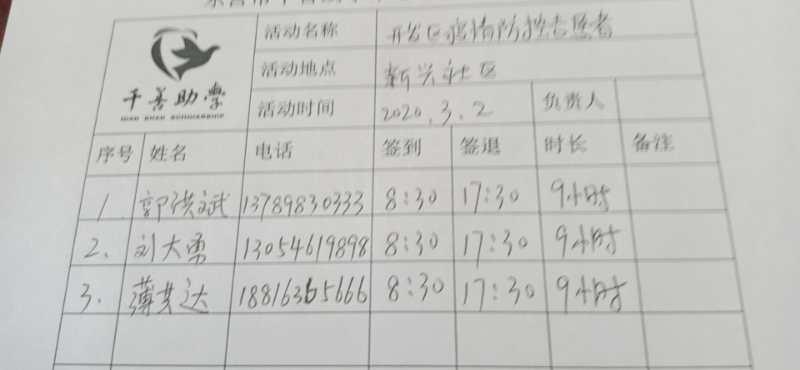 活动名称 开发区疫情防控志愿者
活动地点 新兴社区
千善助学
QIAN SHAN SCHOLARSHIP
活动时间 2020.3.2 负责人
序号 姓名 电话 签到 签退 时长 备注
1. 郭洪斌 13789830333 8:30 17:30 9小时
2. 刘大勇 13054619898 8:30 17:30 9小时
3. 薄其达 18816365666 8:30 17:30 9小时